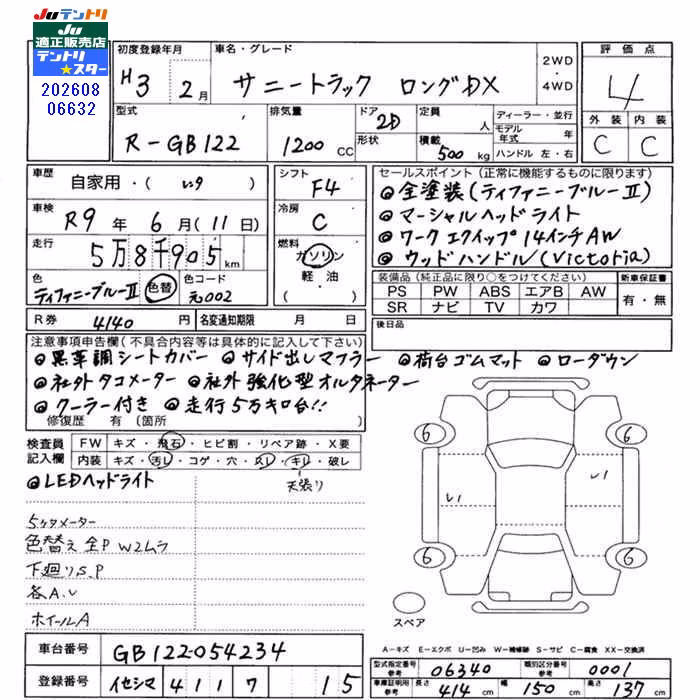 Juテントリ
Ju
適正販売店
テントリ
★スター
202608
06632
初度登録年月
H3 年 2月
車名・グレード
サニートラック ロングDX
2WD
・
4WD
評価点
4
外装 内装
C C
型式
R-GB122
排気量
1200 CC
ドア
2D
形状
定員
人
積載
500 kg
ディーラー・並行
モデル年式 年
ハンドル 左・右
車歴
自家用・( )
車検
R9 年 6 月 (11 日)
走行
5万8千905 km
色
ティファニーブルーII 色替
色コード
元002
シフト
F4
冷房
C
燃料
ガソリン
軽・油
( )
セールスポイント(正常に機能するものに限ります)
◎全塗装(ティファニーブルーII)
◎マーシャルヘッドライト
◎ワークエクイップ14インチAW
◎ウッドハンドル(Victoria)
装備品(純正品に限り○をつけてください)
PS PW ABS エアB AW
SR ナビ TV カワ
新車保証書
有・無
R券 4140 円
名変通知期限 月 日
後日品
注意事項申告欄(不具合内容等は具体的に記入して下さい)
◎黒革調シートカバー ◎サイド出しマフラー ◎荷台ゴムマット ◎ローダウン
◎社外タコメーター ◎社外強化型オルタネーター
◎クーラー付き ◎走行5万キロ台!!
修復歴 有 (箇所
検査員
記入欄
FW キズ・飛石・ヒビ割・リペア跡・X要
内装 キズ・汚レ・コゲ・穴・スレ・キレ・破レ
天張り
◎LEDヘッドライト
5ケタメーター
色替え全P W2ムラ
下廻りS.P
各A.U
ホイールA
6 6
U1 U1
6 6
スペア
A-キズ E-エクボ U-凹み W-補修跡 S-サビ C-腐食 XX-交換済
車台番号 GB122-054234
登録番号 イセシマ 411 ワ 15
型式指定番号
参考
06340
類別区分番号
参考
0001
車庫証明用
参考
長さ 414 cm 幅 150 cm 高さ 137 cm